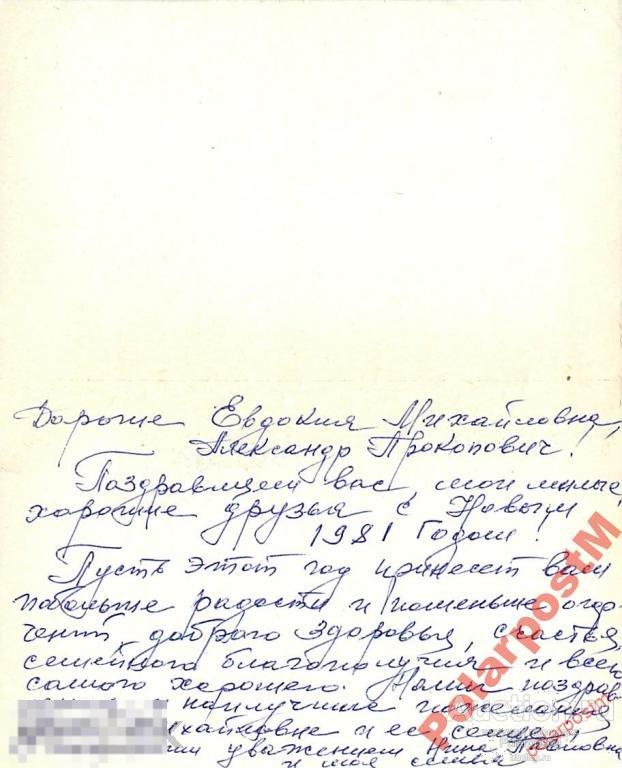 Дорогие Евдокия Михайловна,
Александр Прокопович!
Поздравляем вас, мои милые,
хорошие друзья с Новым
1981 Годом!
Пусть этот год принесет вам
побольше радости и поменьше огор-
чений, доброго здоровья, счастья,
семейного благополучия и всего
самого хорошего. Наши поздрав-
наилучшие пожелания
хайловне и ее семье.
уважением Нина Павловна
и моя семья
PolarpostM
polarpostm